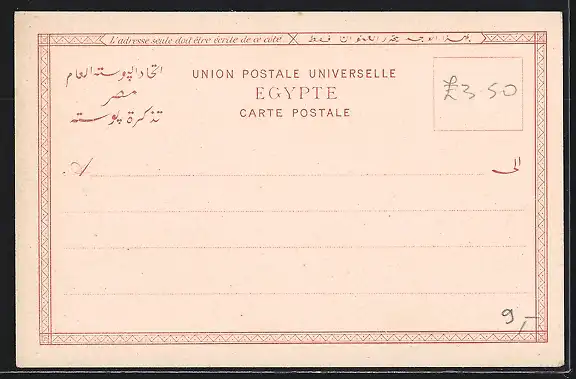 L'adresse seule doit être écrite de ce côté
بهذا الوجه يحرر العنوان فقط
اتحاد البوسته العام
مصر
تذكرة بوسته
UNION POSTALE UNIVERSELLE
EGYPTE
CARTE POSTALE
£3.50
الى
9,-